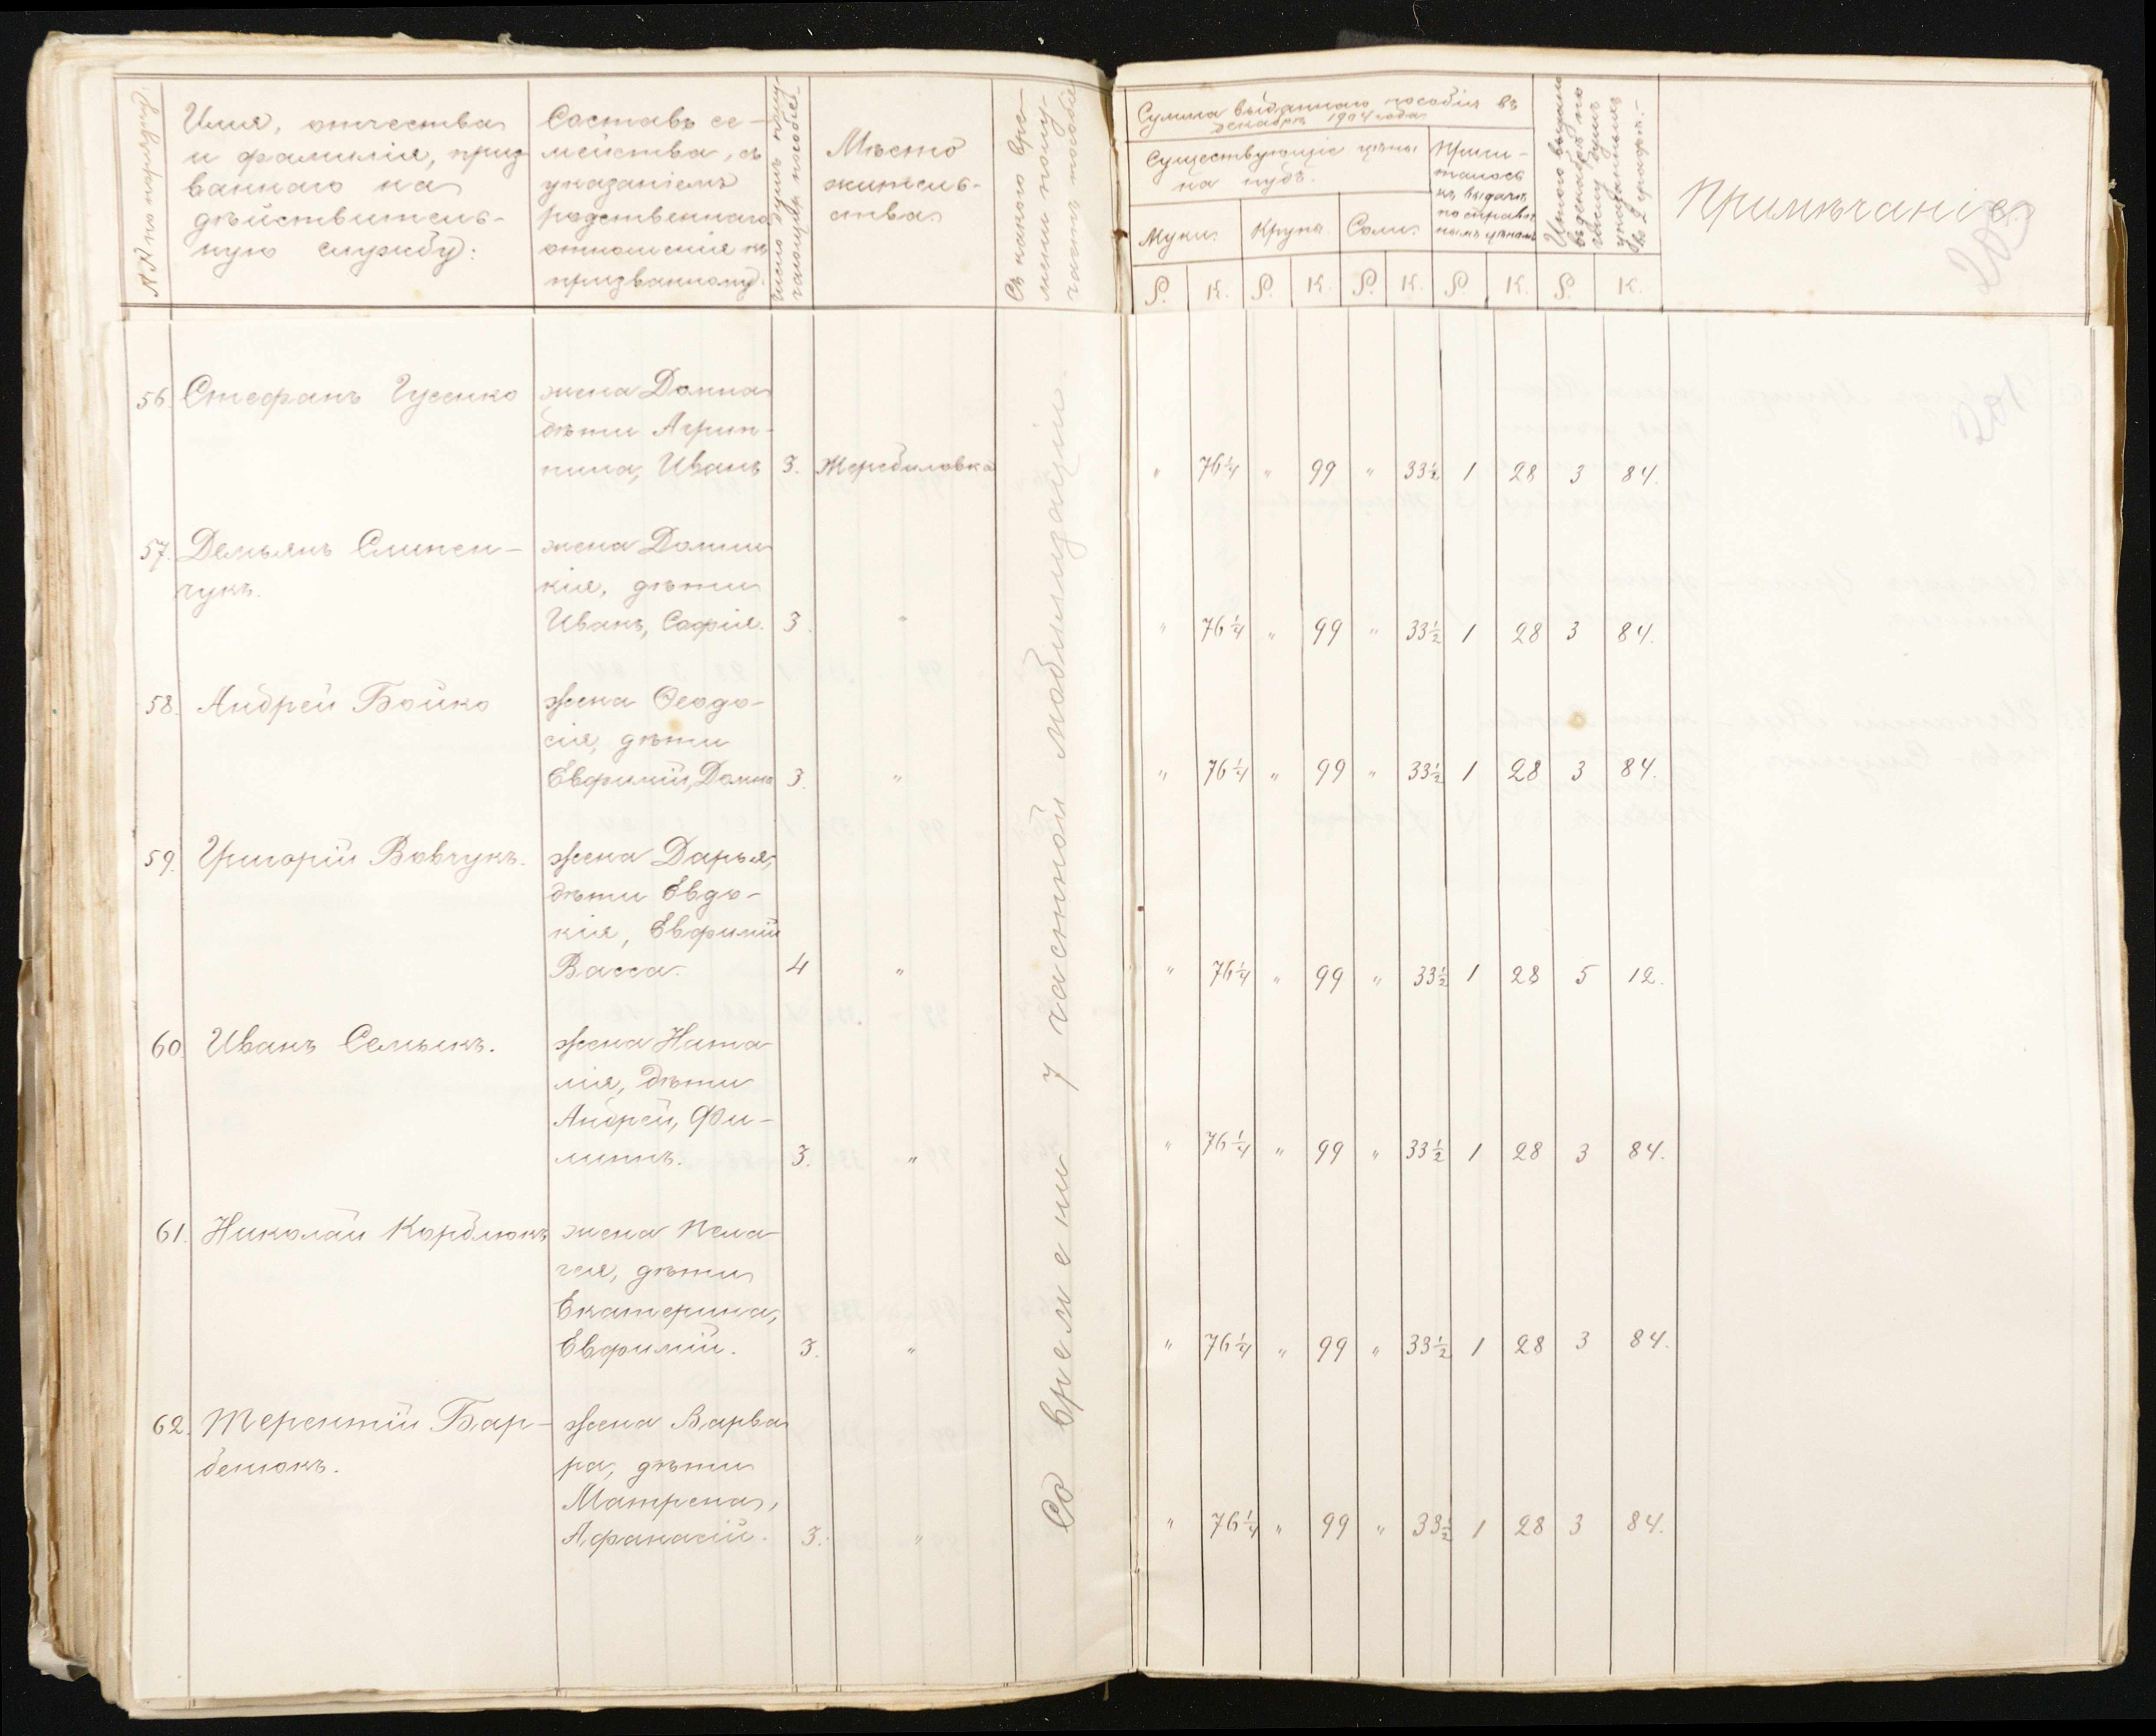 №№ по порядку.
Имя, отчества
и фамилія, приз
ваннаго на
дѣйствитель-
ную службу:
Составъ се-
мейства, съ
указаніемъ
родственнаго
отношенія къ
призванному.
Число душъ полу-
чающихъ пособіе.
Мѣсто
житель-
ства
Съ какого вре-
мени полу-
частъ пособіе
Сумма выданнаго пособія въ
декабрѣ 1904 года
Существующіе цѣны
на пудъ.
Муки. Крупы. Соли.
Причи-
талось
къ выдачѣ
по справоч
нымъ цѣнамъ
Итого выдано
въ декабрѣ по
числу душъ
указаннымъ
въ 2 графѣ.-
Примѣчаніе.
Р. К. Р. К. Р. К. Р. К. Р. К.
56. Стефанъ Гусенко жена Домна
дѣти Агрип-
пина, Иванъ 3. Жеребиловка " 76¼ " 99 " 33½ 1 28 3 84.
57. Демьянъ Слипен- жена Домни
чукъ. кія, дѣти
Иванъ, Софія. 3. " " 76¼ " 99 " 33½ 1 28 3 84.
58. Андрей Бойко жена Ѳеодо-
сія, дѣти
Евфимій, Домна 3. " " 76¼ " 99 " 33½ 1 28 3 84.
59. Григорій Вовчукъ. жена Дарья,
дѣти Евдо-
кія, Евфимій
Васса. 4 " " 76¼ " 99 " 33½ 1 28 5 12.
60. Иванъ Семыкъ. жена Ната
лія, дѣти
Андрей, Фи-
липпъ. 3. " " 76¼ " 99 " 33½ 1 28 3 84.
61. Николай Кордлюкъ жена Пела
гея, дѣти
Екатерина,
Евфимій. 3. " " 76¼ " 99 " 33½ 1 28 3 84.
62. Терентій Бар- жена Варва
бенюкъ. ра, дѣти
Матрена,
Афанасій. 3. " " 76¼ " 99 " 33½ 1 28 3 84.
Со времени 7 частной мобилизаціи